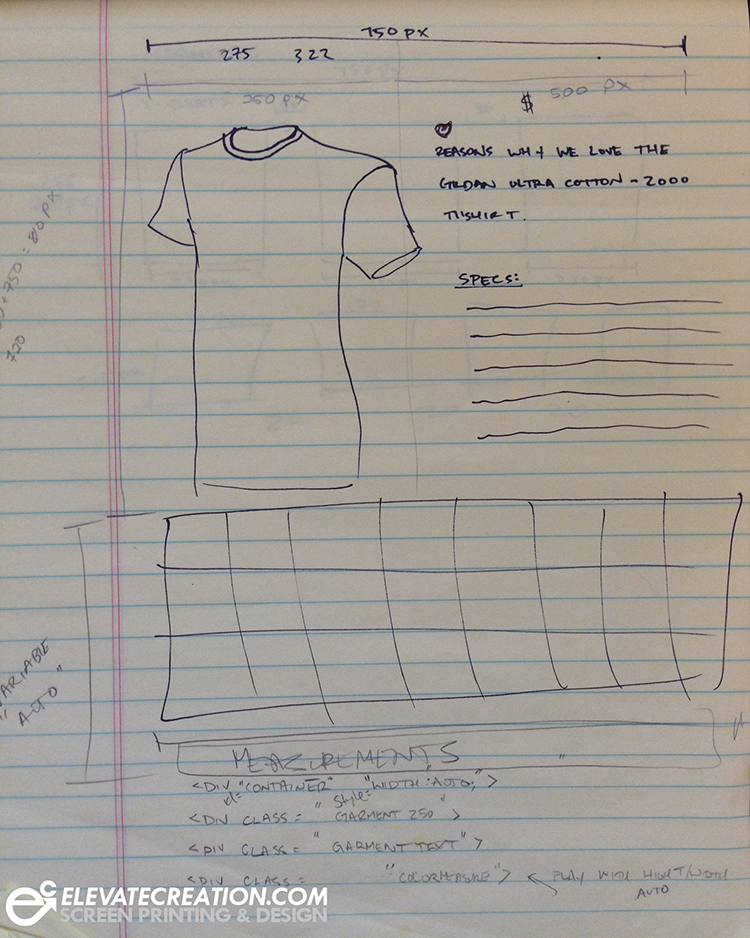 750 PX
275 322
250 PX
$ 500 PX
REASONS WHY WE LOVE THE
GILDAN ULTRA COTTON - 2000
TISHIRT.
SPECS:
+ 750 = 80 PX
720
VARIABLE
"AUTO"
MEASUREMENTS
<DIV id= "CONTAINER" style= "WIDTH: AUTO;">
<DIV CLASS = "GARMENT 250">
<DIV CLASS = "GARMENT TEXT">
<DIV CLASS = ">
PLAY WITH HIGHT/WIDTH
AUTO
ELEVATECREATION.COM
SCREEN PRINTING & DESIGN